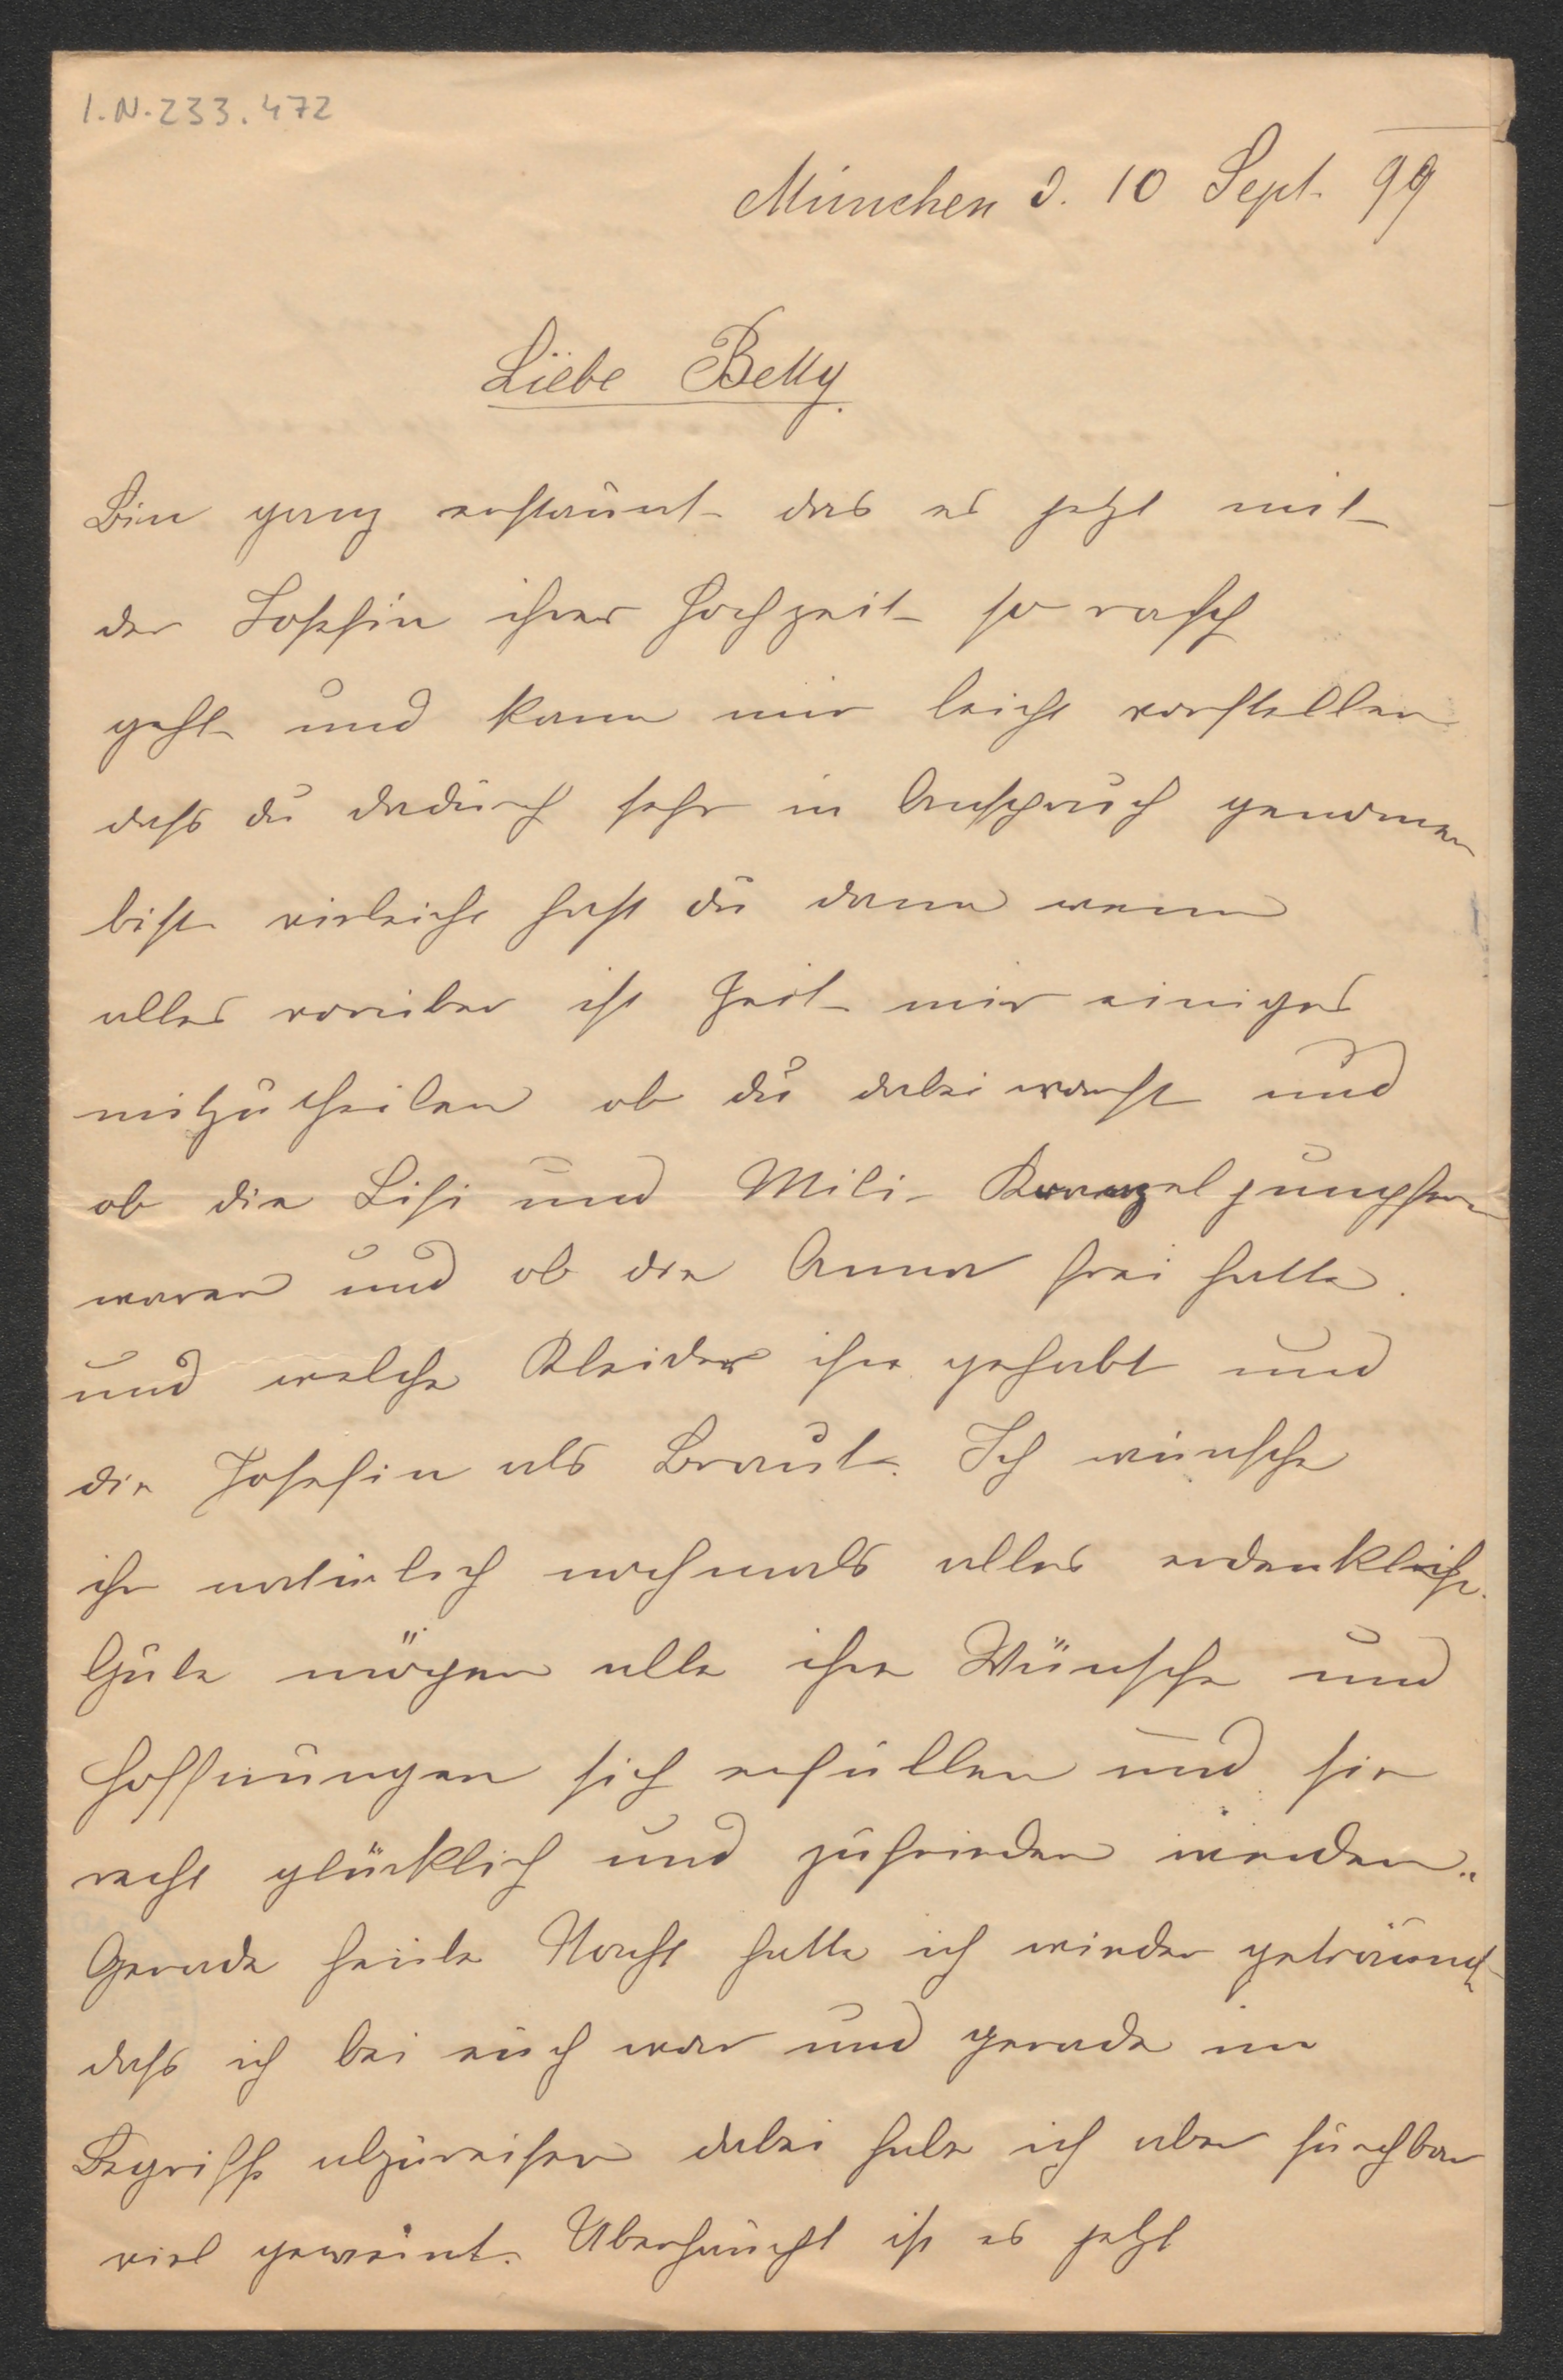 I.N. 233.472
München d. 10 Sept. 99
Liebe Betty.
Bin ganz erstaunt das es jetzt mit
der Josefin ihrer Hochzeit so rasch
geht und kann mir leicht vorstellen
dass du dadurch sehr in Anspruch genomen
bist vieleicht hast du dann wenn
alles vorüber ist Zeit mir einiges
mitzutheilen ob du dabei warst und
ob die Lisi und Mili Kranzeljungfern
waren und ob die Anna frei hatte.
und welche Kleider ihr gehabt und
die Josefin als Braut. Ich wünsche
ihr natürlich nochmals alles erdenkliche
Gute mögen alle ihre Wünsche und
Hoffnungen sich erfüllen und sie
recht glücklich und zufrieden werden.
Gerade heute Nacht hatte ich wieder geträumt
dass ich bei euch war und gerade im
Begriffe abzureisen dabei habe ich aber furchbar
viel geweint. Überhaupt ist es jetzt